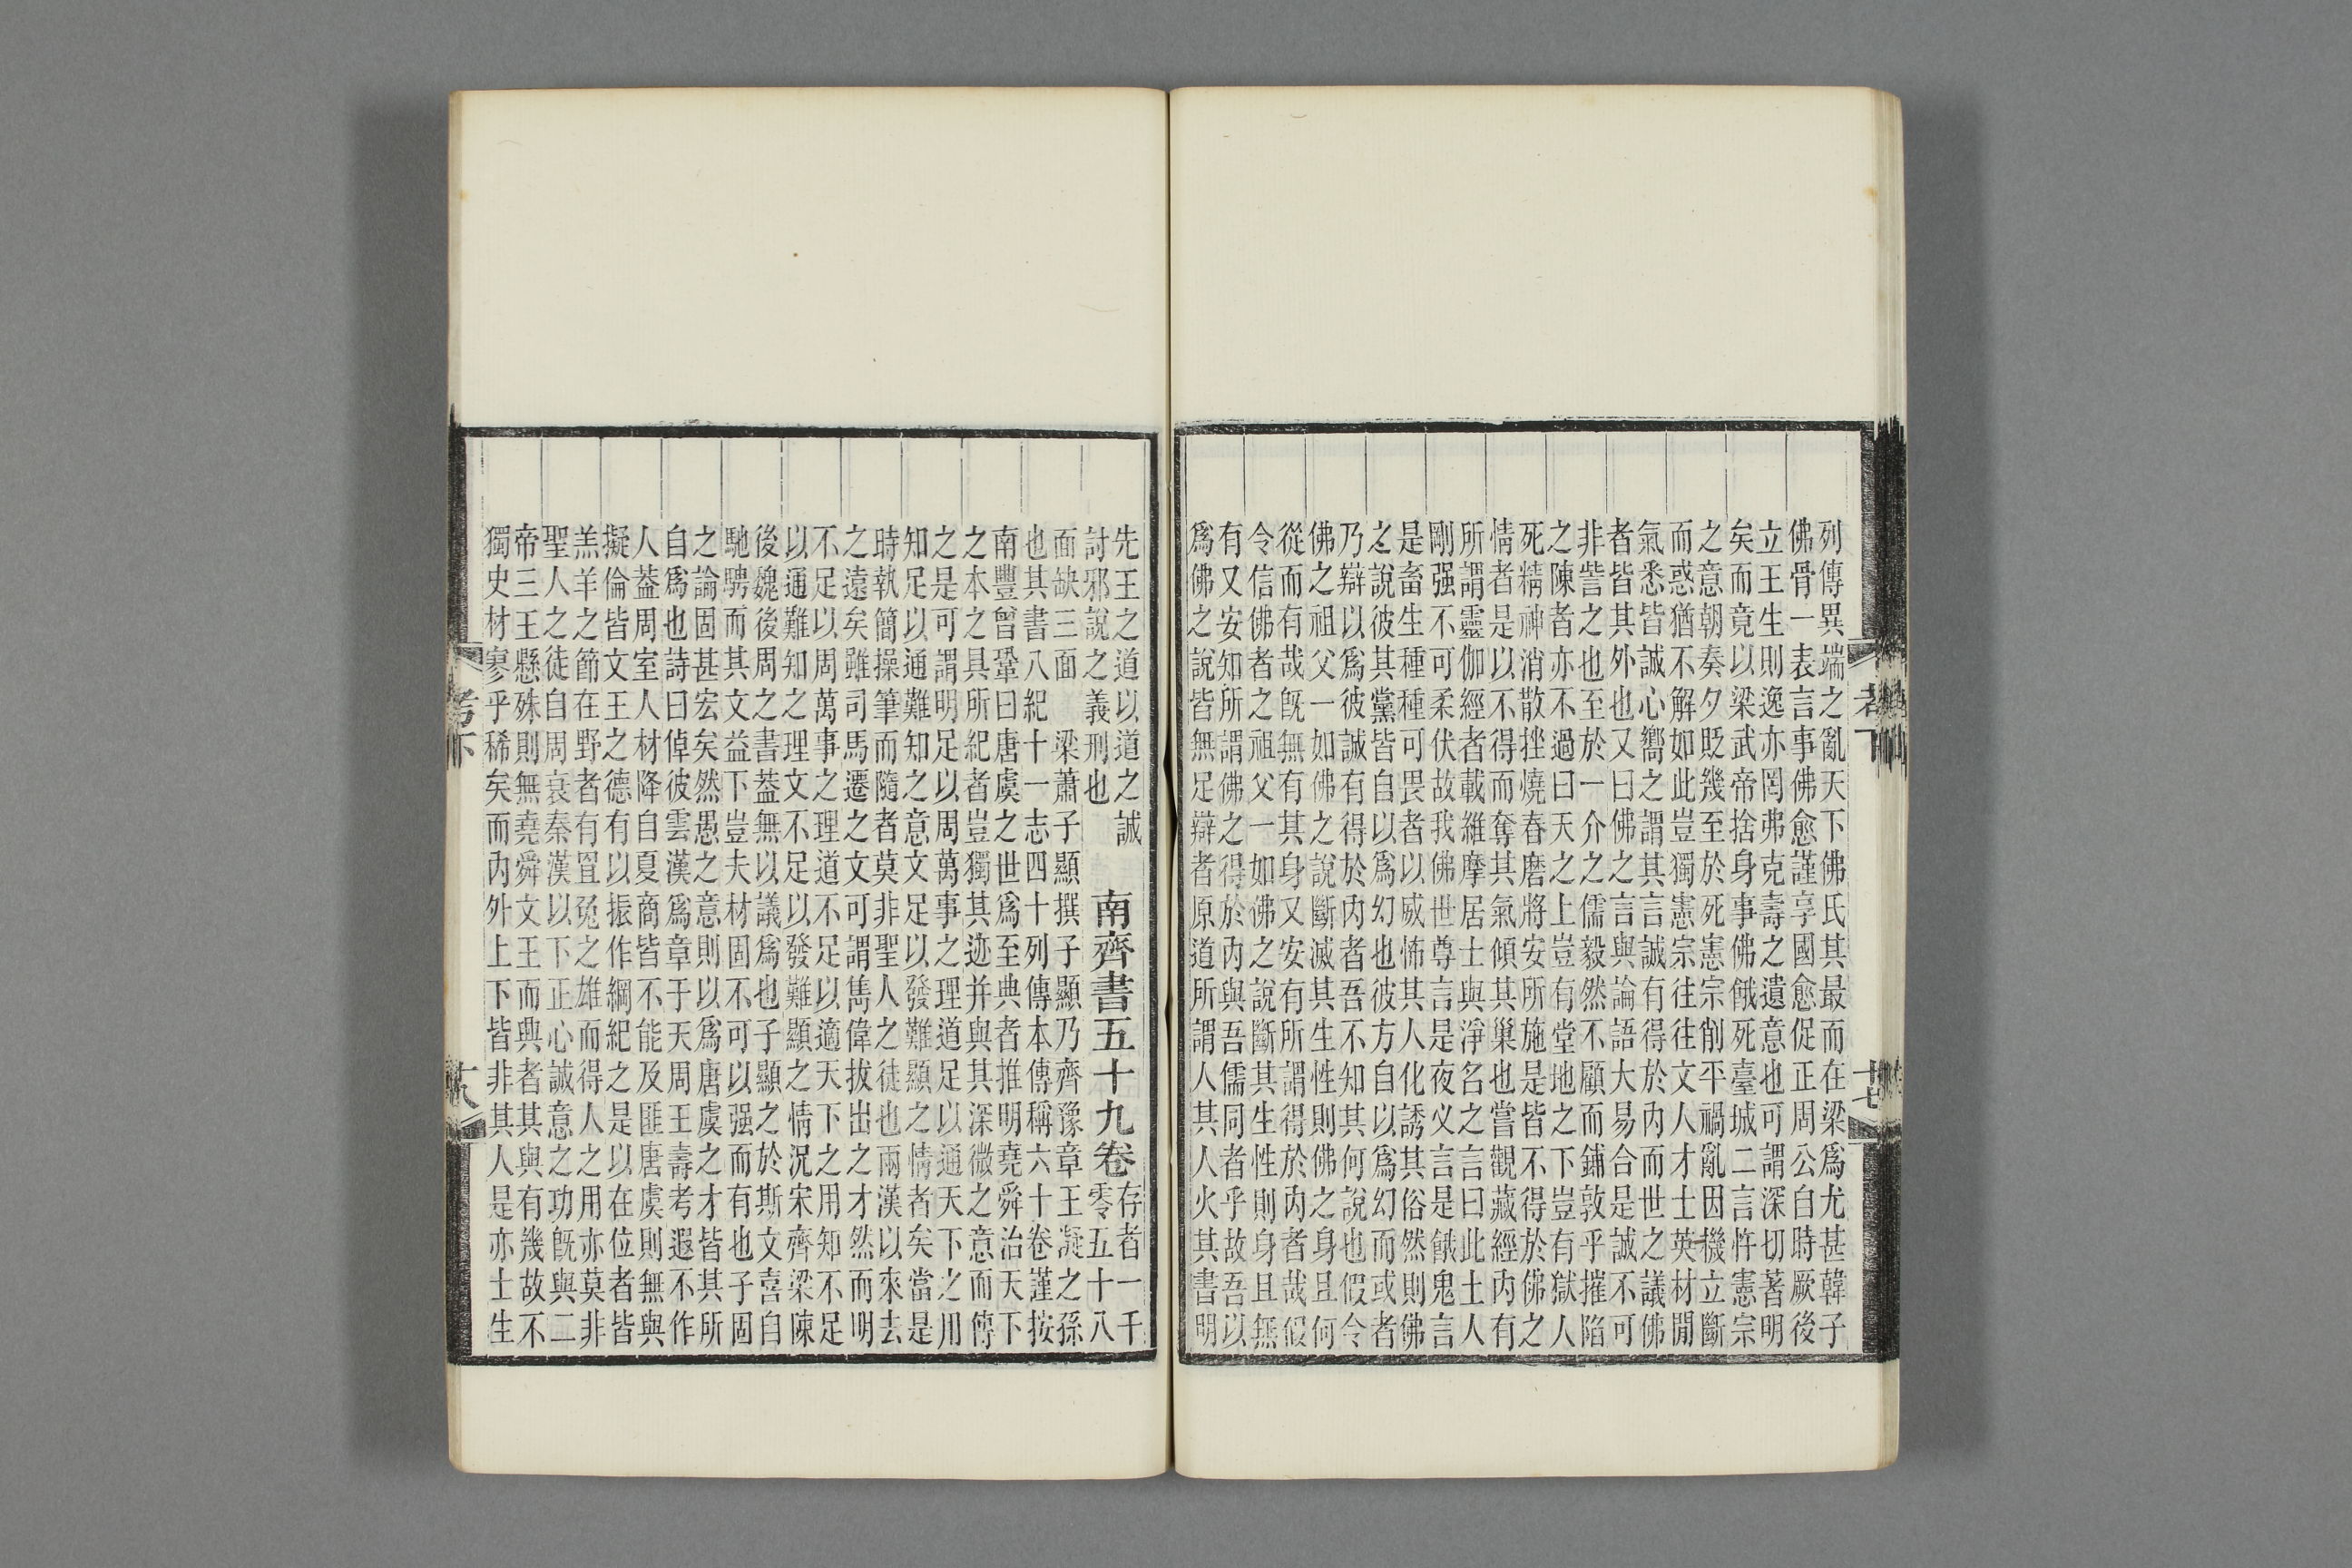 列傳異端之亂天下佛氏其最而在梁爲尤甚韓子
佛骨一表言事佛愈謹享國愈促正周公自時厥後
立王生則逸亦罔弗克壽之遺意也可謂深切著明
矣而竟以梁武帝捨身事佛餓死臺城二言忤憲宗
之意朝奏夕貶幾至於死憲宗削平禍亂因機立斷
而惑猶不解如此豈獨憲宗往往文人才士英材閒
氣悉皆誠心嚮之謂其言誠有得於內而世之議佛
者皆其外也又曰佛之言與論語大易合是誠不可
非訾之也至於一介之儒毅然不顧而鋪敦乎摧陷
之陳者亦不過曰天之上豈有堂地之下豈有獄人
死精神消散挫燒舂磨將安所施是皆不得於佛之
情者是以不得而奪其氣傾其巢也嘗觀藏經內有
所謂靈伽經者載維摩居士與淨名之言曰此土人
剛强不可柔伏故我佛世尊言是夜义言是餓鬼言
是畜生種種可畏者以威怖其人化誘其俗然則佛
之說彼其黨皆自以爲幻也彼方自以爲幻而或者
乃辯以爲彼誠有得於內者吾不知其何說也假令
佛之祖父一如佛之說斷滅其生性則佛之身且何
從而有哉旣無有其身又安有所謂得於內者哉假
令信佛者之祖父一如佛之說斷其生性則身且無
有又安知所謂佛之得於內與吾儒同者乎故吾以
爲佛之說皆無足辯者原道所謂人其人火其書明
考下
十七
先王之道以道之誠
討邪說之義刑也
南齊書五十九卷
存者一千
零五十八
面缺三面 梁蕭子顯撰子顯乃齊豫章王凝之孫
也其書八紀十一志四十列傳本傳稱六十卷謹按
南豐曾鞏曰唐虞之世爲至典者推明堯舜治天下
之本之具所紀者豈獨其迹并與其深微之意而傳
之是可謂明足以周萬事之理道足以通天下之用
知足以通難知之意文足以發難顯之情者矣當是
時執簡操筆而隨者莫非聖人之徒也兩漢以來去
之遠矣雖司馬遷之文可謂雋偉拔出之才然而明
不足以周萬事之理道不足以適天下之用知不足
以通難知之理文不足以發難顯之情況宋齊梁陳
後魏後周之書葢無以議爲也子顯之於斯文喜自
馳騁而其文益下豈夫材固不可以强而有也子固
之論固甚宏矣然愚之意則以爲唐虞之才皆其所
自爲也詩曰倬彼雲漢爲章于天周王壽考遐不作
人葢周室人材降自夏商皆不能及匪唐虞則無與
擬倫皆文王之德有以振作綱紀之是以在位者皆
羔羊之節在野者有罝兔之雄而得人之用亦莫非
聖人之徒自周衰秦漢以下正心誠意之功旣與二
帝三王懸殊則無堯舜文王而典者其與有幾故不
獨史材寥乎稀矣而內外上下皆非其人是亦士生
考下
十八